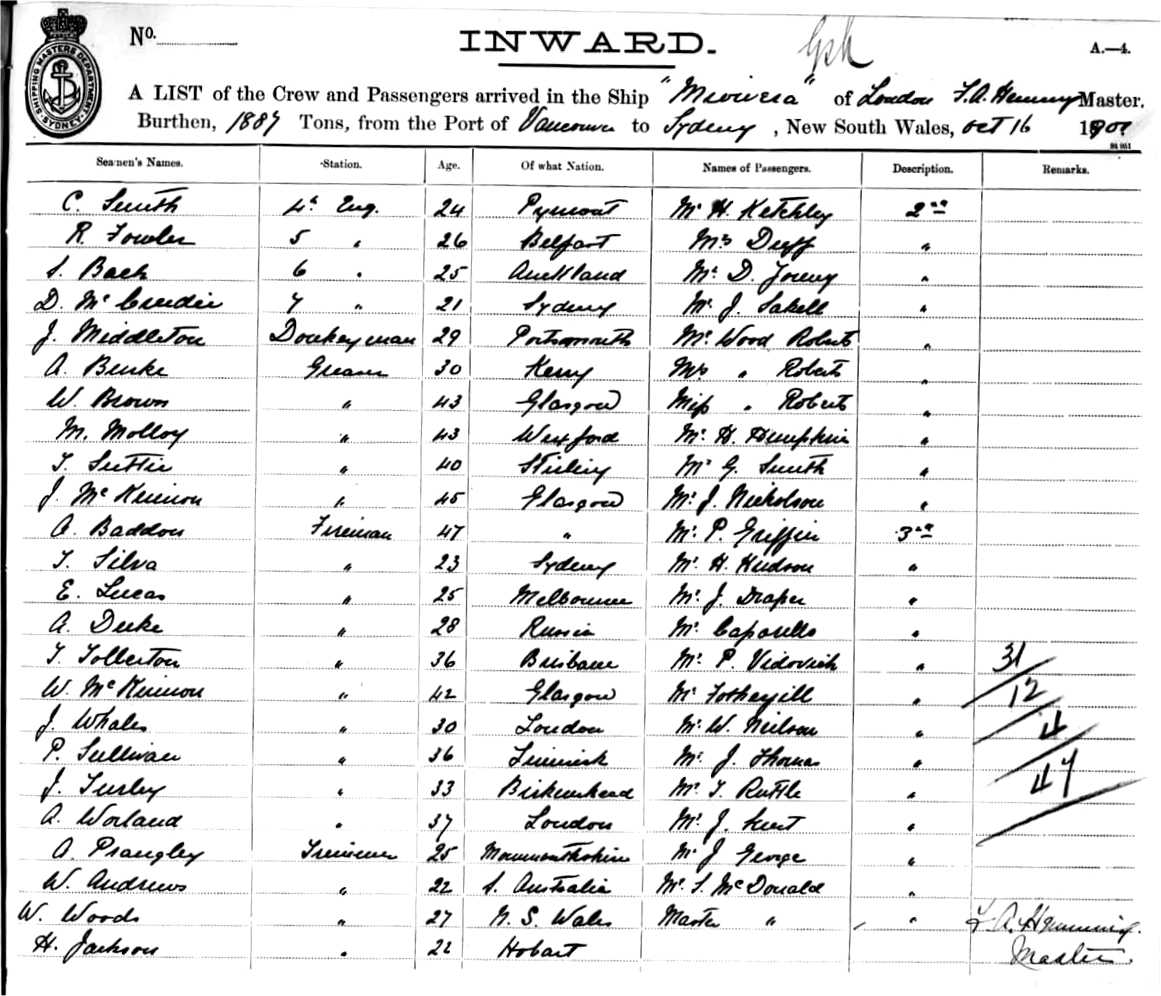 No.
INWARD.
A.—4.
SHIPPING MASTERS DEPARTMENT SYDNEY
A LIST of the Crew and Passengers arrived in the Ship "Miowera" of London F. A. Hemming Master.
Burthen, 1887 Tons, from the Port of Vancouver to Sydney, New South Wales, Oct 16
Seamen's Names. Station. Age. Of what Nation. Names of Passengers. Description. Remarks.
C. Smith 4th Eng. 24 Pyrmont Mr H. Ketchley 2nd
R. Fowler 5 " 26 Belfast Mrs Duff "
S. Bach 6 " 25 Auckland Mr. D. Young "
D. McCrudie 7 " 21 Sydney Mr J. Sakell "
J. Middleton Donkeyman 29 Portsmouth Mr Wood Roberts "
A. Burke Greaser 30 Kerry Mrs " Roberts "
W. Brown " 43 Glasgow Miss " Roberts "
M. Molloy " 43 Wexford Mr. H. "
T. Suttie " 40 Stirling Mr G. Smith "
J. McKinnon " 45 Glasgow Mr. J. Nicholson "
A. Baddon Fireman 47 " Mr. P. Griffin 3rd
T. Silva " 23 Sydney Mr. H. Hudson "
E. Lucas " 25 Melbourne Mr. J. Draper "
A. Duke " 28 Russia Mr. Caporello "
T. Tollerton " 36 Brisbane Mr. P. Vidovich " 31
W. McKinnon " 42 Glasgow Mr Fothergill " 12
J. Whales " 30 London Mr. W. Neilson " 4
P. Sullivan " 36 Limerick Mr. J. Thomas "
J. Turley " 33 Birkenhead Mr. T. Ruttle " 47
A. Worland " 37 London Mr. J. "
A. Prangley Trimmer 25 Monmouthshire Mr J. George "
W. Andrews " 22 S. Australia Mr. S. McDonald "
W. Woods " 27 N. S. Wales Master " " F. A. Hemming.
H. Jackson " 22 Hobart Master.